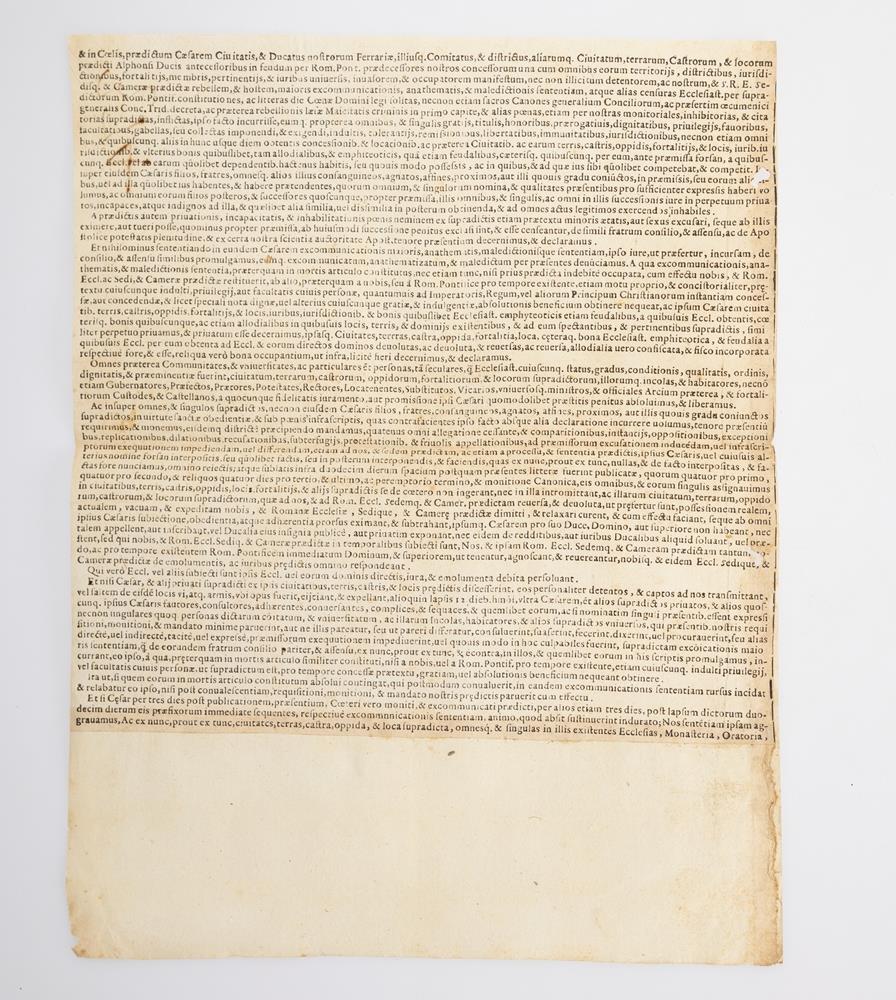 & in Cœlis, prædictum Cæsarem Ciuitatis, & Ducatus nostrorum Ferrariæ, illiusq. Comitatus, & districtus, aliarumq. Ciuitatum, terrarum, Castrorum, & locorum
prædicti Alphonsi Ducis antecessoribus in feudum per Rom. Pont. prædecessores nostros concessorum una cum omnibus eorum territorijs, districtibus, iurisdi-
ctionibus, fortalitijs, membris, pertinentijs, & iuribus uniuersis, inuasorem, & occupatorem manifestum, nec non illicitum detentorem, ac nostrum, & S. R. E. Se-
disq. & Cameræ prædictæ rebellem, & hostem, maioris excommunicationis, anathematis, & maledictionis sententiam, atque alias censuras Ecclesiast. per supra-
dictorum Rom. Pontif. constitutiones, ac litteras die Cœnæ Domini legi solitas, necnon etiam sacros Canones generalium Conciliorum, ac præsertim œcumenici
generalis Conc. Trid. decreta, ac præterea rebellionis læsæ Maiestatis criminis in primo capite, & alias pœnas, etiam per nostras monitoriales, inhibitorias, & cita
torias supradictas, inflictas, ipso facto incurrisse, eumq. propterea omnibus, & singulis gratijs, titulis, honoribus, prærogatiuis, dignitatibus, priuilegijs, fauoribus,
facultatibus, gabellas, seu collectas imponendi, & exigendi, indultis, tolerantijs, remissionibus, libertatibus, immunitatibus, iurisdictionibus, necnon etiam omni
bus, & quibuscunq. alijs in hunc usque diem obtentis concessionib. & locationib. ac præterea Ciuitatib. ac earum terris, castris, oppidis, fortalitijs, & locis, iurib. iu
risdictionib. & vlterius bonis quibuslibet, tam allodialibus, & emphiteoticis, quà etiam feudalibus, cæterisq. quibuscunq. per eum, ante præmissa forsan, a quibus-
cunq. Eccl. vel ab earum quolibet dependentib. hactenus habitis, seu quouis modo possessis, ac in quibus, & ad quæ ius sibi quolibet competebat, & competit.
super eiusdem Cæsaris filios, fratres, omnesq. alios illius consanguineos, agnatos, affines, proximos, aut illi quouis gradu coniūctos, in præmissis, seu eorum
bus, uel ad illa quolibet ius habentes, & habere prætendentes, quorum omnium, & singulorum nomina, & qualitates præsentibus pro sufficienter expressis haberi vo
lumus, ac omnium eorum filios posteros, & successores quoscunque, propter præmissa, illis omnibus, & singulis, ac omni in illis successionis iure in perpetuum priua
tos, incapaces, atque indignos ad illa, & quælibet alia similia, uel dissimilia in posterum obtinenda, & ad omnes actus legitimos exercendos inhabiles.
A prædictis autem priuationis, incapacitatis, & inhabilitationis pœnis neminem ex supradictis etiam prætextu minoris ætatis, aut sexus excusari, seque ab illis
eximere, aut tueri posse, quominus propter præmissa, ab huiusmodi successione penitus exclusi sint, & esse censeantur, de simili fratrum consilio, & assensu, ac de Apo
stolicæ potestatis plenitudine, & ex certa nostra scientia auctoritate Apost. tenore præsentium decernimus, & declaramus.
Et nihilominus sententiam in eundem Cæsarem excommunicationis maioris, anathematis, maledictionisque sententiam, ipso iure, ut præfertur, incursam, de
consilio, & assensu similibus promulgamus, eumq. excomunicatum, anathematizatum, & maledictum per præsentes denūciamus. A qua excommunicationis, ana-
thematis, & maledictionis sententia, præterquam in mortis articulo constitutus, nec etiam tunc, nisi prius prædicta indebitè occupata, cum effectu nobis, & Rom.
Eccl. ac Sedi, & Cameræ prædictæ restituerit, ab alio, præterquam a nobis, seu à Rom. Pontifice pro tempore existente, etiam motu proprio, & consistorialiter, præ-
textu cuiuscunque indulti, priuilegij, aut facultatis cuiuis personæ, quantumuis ad Imperatoris, Regum, vel aliorum Principum Christianorum instantiam conces-
sæ, aut concedendæ, & licet speciali nota dignæ, uel alterius cuiuscunque gratiæ, & indulgentiæ, absolutionis beneficium obtinere nequeat, ac ipsum Cæsarem ciuita
tib. terris, castris, oppidis, fortalitijs, & locis, iuribus, iurisdictionib. & bonis quibuslibet Ecclesiast. emphyteoticis etiam feudalibus, a quibusuis Eccl. obtentis, cœ
terisq. bonis quibuscunque, ac etiam allodialibus in quibusuis locis, terris, & dominijs existentibus, & ad eum spectantibus, & pertinentibus supradictis, simi
liter perpetuo priuamus, & priuatum esse decernimus, ipsasq. Ciuitates, terras, castra, oppida, fortalitia, loca, cęteraq. bona Ecclesiast. emphiteotica, & feudalia a
quibusuis Eccl. per eum obtenta ad Eccl. & eorum directos dominos deuolutas, ac deuoluta, & reuersas, ac reuersa, allodialia uero confiscata, & fisco incorporata
respectiuè fore, & esse, reliqua verò bona occupantium, ut infra, licitè fieri decernimus, & declaramus.
Omnes præterea Communitates, & vniuersitates, ac particulares ēt personas, tā seculares, q̄ Ecclesiast. cuiuscunq. status, gradus, conditionis, qualitatis, ordinis,
dignitatis, & præeminentiæ fuerint, ciuitatum, terrarum, castrorum, oppidorum, fortalitiorum, & locorum supradictorum, illorumq. incolas, & habitatores, necnō
etiam Gubernatores, Præfectos, Prætores, Potestates, Rectores, Locatenentes, Substitutos, Vicarios, vniuersosq. ministros, & officiales Arcium præterea, & fortali-
tiorum Custodes, & Castellanos, a quocunque fidelitatis iuramento, aut promissione ipsi Cæsari quomodolibet præstitis penitus absoluimus, & liberamus.
Ac insuper omnes, & singulos supradictos, necnon eiusdem Cæsaris filios, fratres, consanguineos, agnatos, affines, proximos, aut illis quouis gradu coniunctos
supradictos, in uirtute sanctæ obedientiæ, & sub pœnis infrascriptis, quas contrafacientes ipso facto absque alia declaratione incurrere uolumus, tenore præsentiū
requirimus, & monemus, eisdemq. districtè præcipiendo mandamus, quatenus omni allegatione cessante, & comparitionibus, instantijs, oppositionibus, exceptioni
bus, replicationibus, dilationibus, recusationibus, subterfugijs, protestationib. & friuolis appellationibus, ad præmissorum excusationem inducēdam, uel infrascri-
ptorum exequutionem impediendam, uel differendam, etiam ad nos, & sedem prædictam, ac etiam a processu, & sententia prædictis, ipsius Cæsaris, uel cuiusuis al-
terius nomine forsan interpositis, seu quolibet factis, seu in posterum interponendis, & faciendis, quas ex nunc, prout ex tunc, nullas, & de facto interpositas, & fa-
ctas fore nunciamus, omnino reiectis; atque sublatis infra duodecim dierum spacium postquam præsentes litteræ fuerint publicatæ, quorum quatuor pro primo,
quatuor pro secundo, & reliquos quatuor dies pro tertio, & ultimo, ac peremptorio termino, & monitione Canonica, eis omnibus, & eorum singulis assignauimus
in ciuitatibus, terris, castris, oppidis, locis, fortalitijs, & alijs supradictis se de cœtero non ingerant, nec in illa intromittant, ac illarum ciuitatum, terrarum, oppido
rum, castrorum, & locorum supradictorum, quæ ad nos, & ad Rom. Eccl. Sedemq. & Camer. prædictam reuersa, & deuoluta, ut præfertur sunt, possessionem realem,
actualem, vacuam, & expeditam nobis, & Romanæ Ecclesiæ, Sedique, & Camerę prædictæ dimitti, & relaxari curent, & cum effectu faciant, seque ab omni
ipsius Cæsaris subiectione, obedientia, atque adhærentia prorsus eximant, & subtrahant, ipsumq. Cæsarem pro suo Duce, Domino, aut superiore non habeant, nec
talem appellent, aut inscribant, vel Ducalia eius insignia publicè, aut priuatim exponant, nec eidem de redditibus, aut iuribus Ducalibus aliquid soluant, uel præ-
stent, sed qui nobis, & Rom. Eccl. Sediq. & Cameræ prædictæ in temporalibus subiecti sunt, Nos, & ipsam Rom. Eccl. Sedemq. & Cameram prædictam tantum
do, ac pro tempore existentem Rom. Pontificem immediatum Dominum, & superiorem, ut tenentur, agnoscant, & reuereantur, nobisq. & eidem Eccl. Sedique, &
Cameræ prædictæ de emolumentis, ac iuribus prędictis omnino respondeant.
Qui verò Eccl. vel alijs subiecti sunt ipsis Eccl. uel eorum dominis directis, iura, & emolumenta debita persoluant.
Et nisi Cæsar, & alij priuati supradicti ex ipsis ciuitatibus, terris, castris, & locis prędictis discesserint, eos personaliter detentos, & captos ad nos transmittant,
vel saltem de eisdē locis vi, atq. armis, vbi opus fuerit, eijciant, & expellant, alioquin lapsis 12. dieb. hmōi, vltra Cæsarem, & alios supradictos priuatos, & alios quos-
cunq. ipsius Cæsaris fautores, consultores, adhærentes, conuersantes, complices, & sequaces, & quemlibet eorum, ac si nominatim singuli præsentib. essent expressi
necnon singulares quoq. personas dictarum ciuitatum, & vniuersitatum, ac illarum incolas, habitatores, & alios supradictos vniuersos, qui præsentib. nostris requi
sitioni, monitioni, & mandato minimè paruerint, aut ne illis pareatur, seu ut pareri differatur, consuluerint, suaserint, fecerint, dixerint, uel procurauerint, seu alias
directè, uel indirectè, tacitè, uel expressè, præmissorum exequutionem impediuerint, uel quouis modo in hoc culpabiles fuerint, supradictam excōicationis maio
ris sententiam, q̄ de eorundem fratrum consilio pariter, & assensu, ex nunc, prout ex tunc, & econtra, in illos, & quemlibet eorum in his scriptis promulgamus, in-
currant, eo ipso, à qua, pręterquam in mortis articulo similiter constituti, nisi a nobis, uel a Rom. Pontif. pro tempore existente, etiam cuiuscunq. indulti priuilegij,
vel facultatis cuiuis personæ, ut supradictum est, pro tempore concessæ prætextu, gratiam, uel absolutionis beneficium nequeant obtinere.
Ita ut, si quem eorum in mortis articulo constitutum absolui contingat, qui postmodum conualuerit, in eandem excommunicationis sententiam rursus incidat
& relabatur eo ipso, nisi post conualescentiam, requisitioni, monitioni, & mandato nostris prędictis paruerit cum effectu.
Et si Cęsar per tres dies post publicationem, præsentium, Cœteri vero moniti, & excommunicati prædicti, per alios etiam tres dies, post lapsum dictorum duo-
decim dierum eis præfixorum immediatè sequentes, respectiuè excommunicationis sententiam, animo, quod absit sustinuerint indurato; Nos sentētiam ipsam ag-
grauamus, Ac ex nunc, prout ex tunc, ciuitates, terras, castra, oppida, & loca supradicta, omnesq. & singulas in illis existentes Ecclesias, Monasteria, Oratoria,